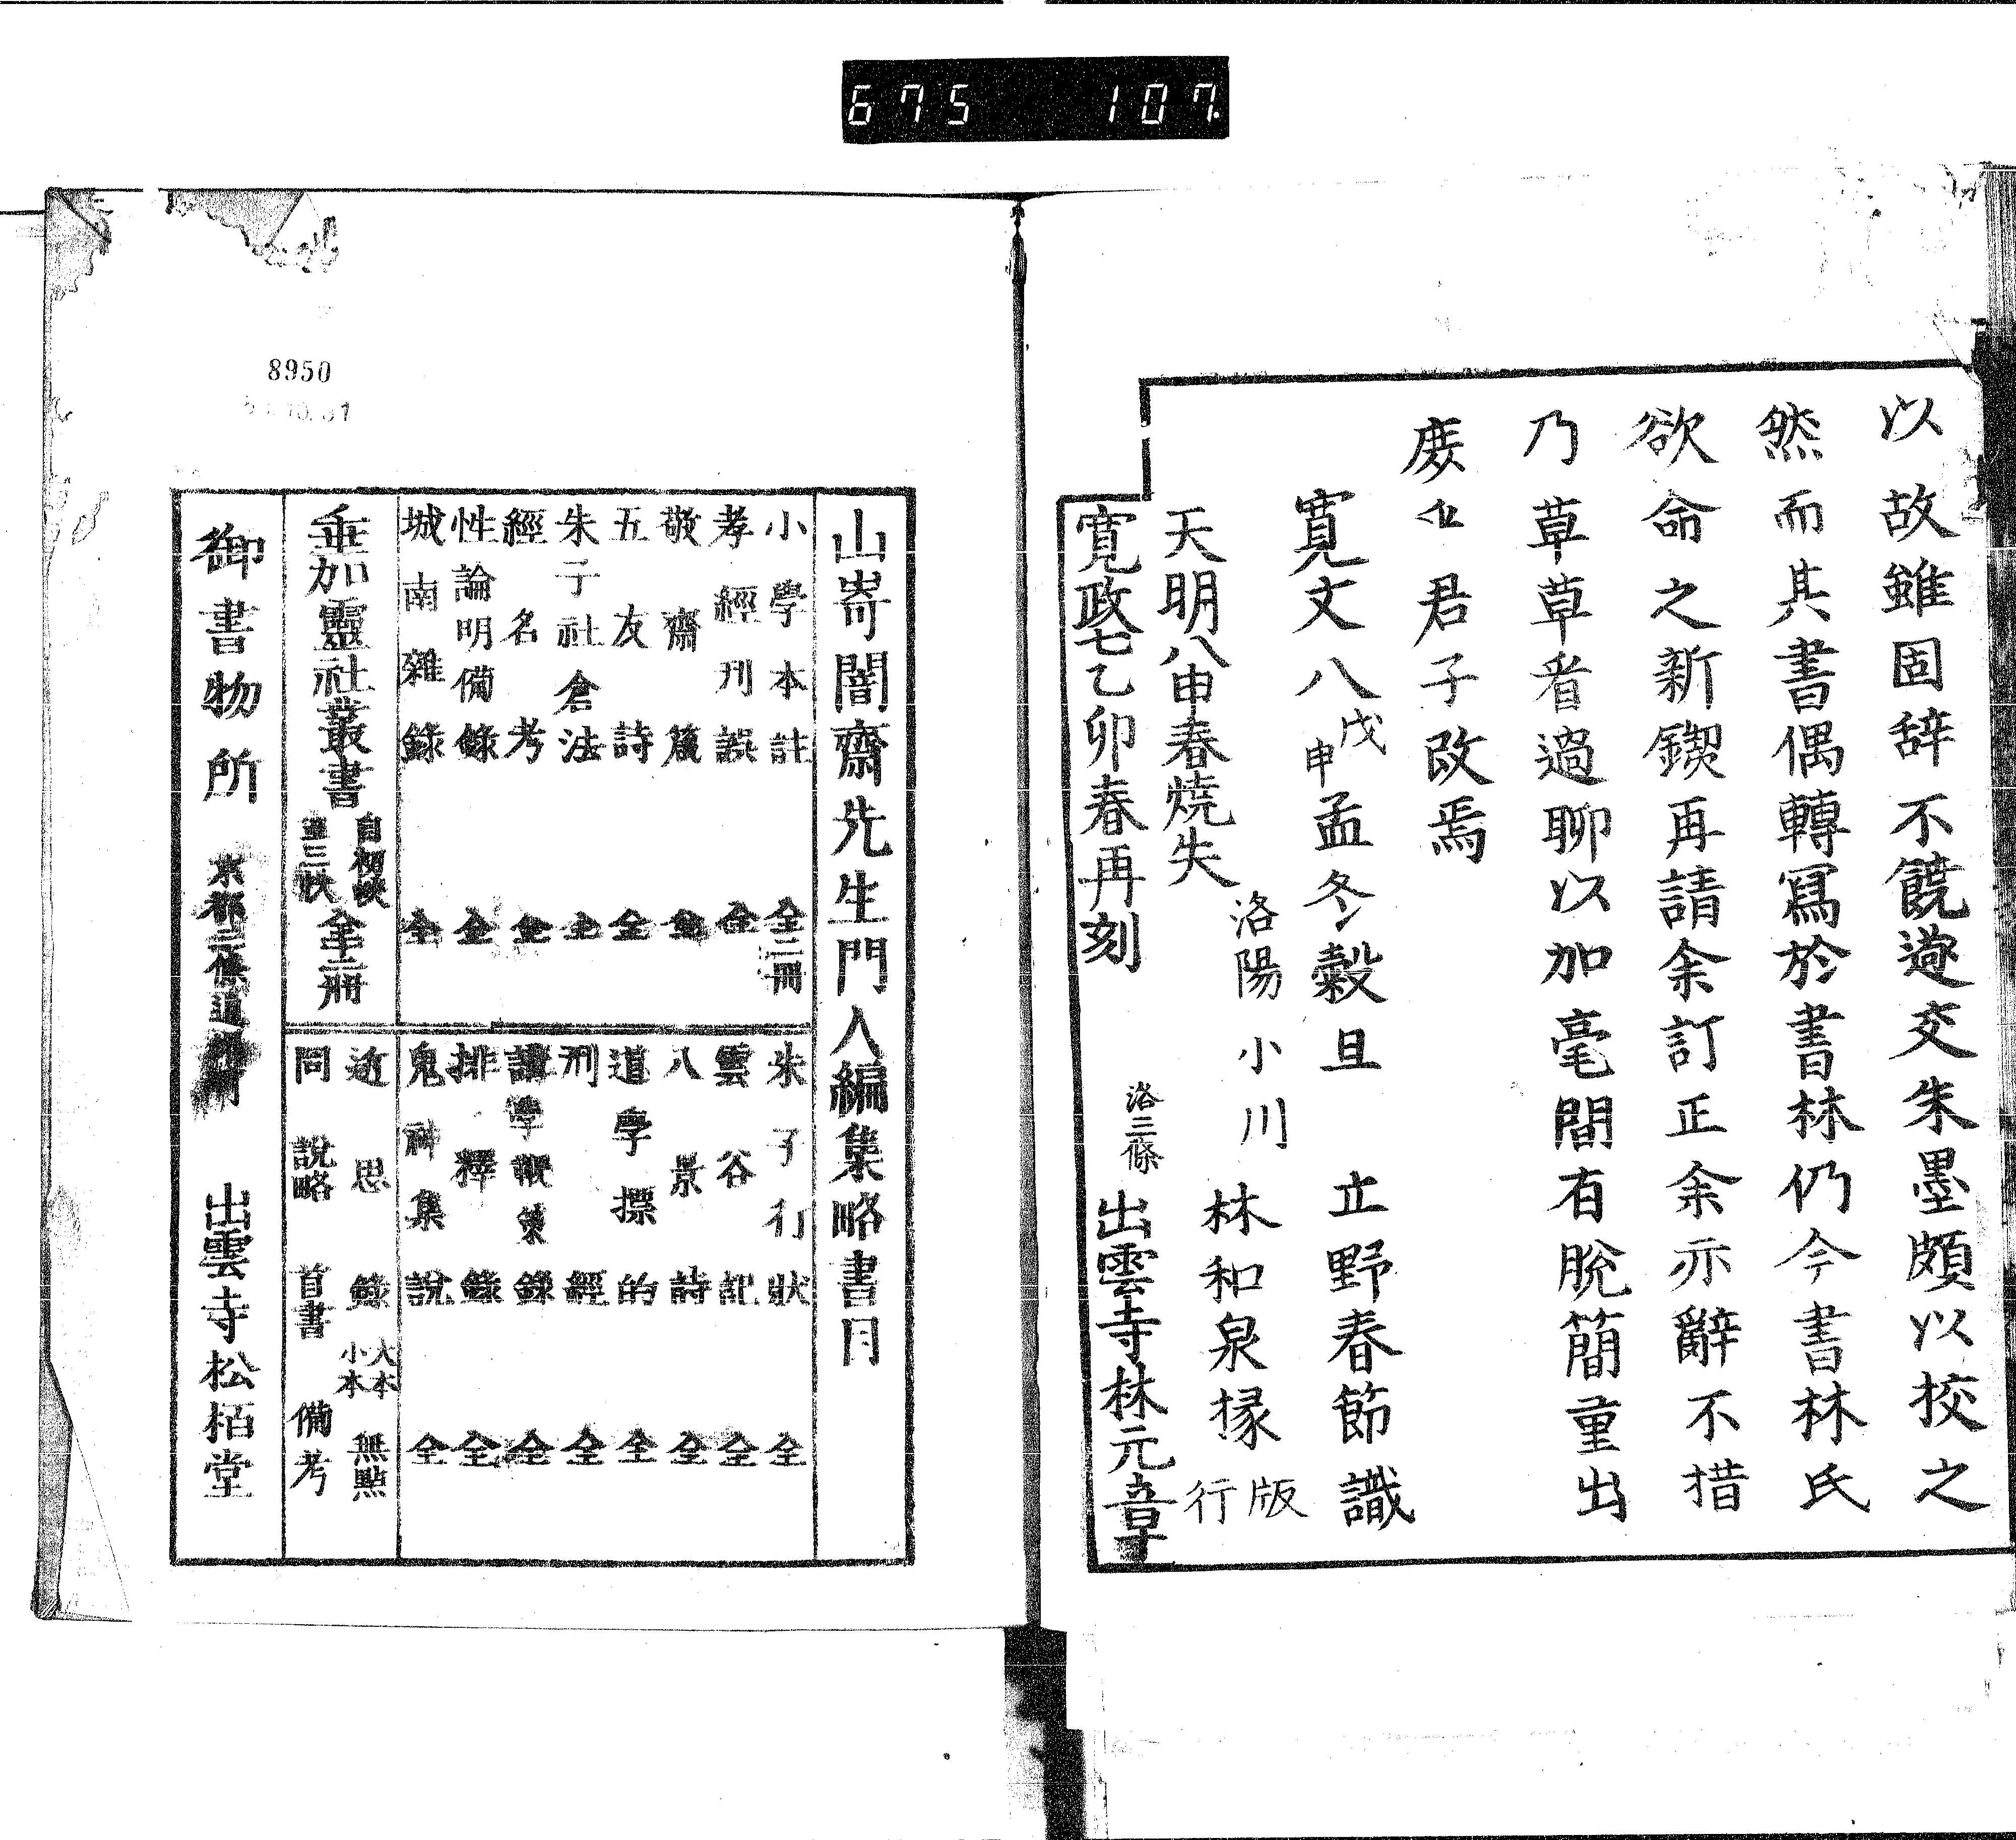 675 107.
以故雖固辞不饒遂交朱墨頗以挍之
然而其書偶轉寫於書林仍今書林氏
欲命之新鍥再請余訂正余亦辭不措
乃草草看過聊以加毫間有脫簡重出
庶

君子改焉
寛文八戊申孟冬穀旦 立野春節識
洛陽小川 林和泉掾 版行
天明八申春焼失
寛政七乙卯春再刻 洛三條 出雲寺林元章
8950
山嵜闇齋先生門人編集略書目
小學本註 全二冊
孝經刊誤 全
敬齋箴 全
五友詩 全
朱子社倉法 全
經名考 全
性論明備錄 全
城南雜錄 全
垂加靈社叢書
朱子行狀 全
雲谷記 全
八景詩 全
道學標的 全
刑經 全
讀學錄 全
排釋錄 全
鬼神集說 全
近思錄 大本 小本 無點
同 說略 首書 備考
御書物所 京都三條通 出雲寺松栢堂